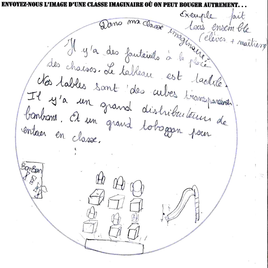 ENVOYEZ-NOUS L'IMAGE D'UNE CLASSE IMAGINAIRE OÙ ON PEUT BOUGER AUTREMENT...
Exemple fait
tous ensemble
(élèves + maîtresse)
Dans ma classe imaginaire :
Il y'a des fauteuils à la place
des chaises. Le tableau est tactile.
Nos tables sont des cubes transparents
Il y'a un grand distributeur de
bonbons. Et un grand toboggan pour
entrer en classe.